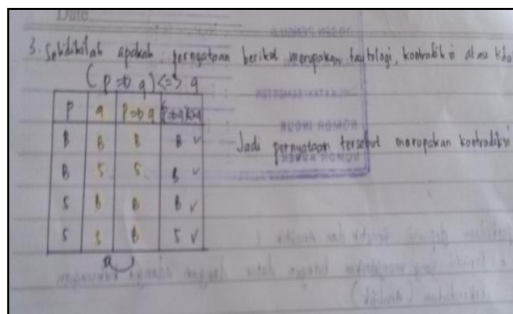 Date
3. Selidikilah apakah pernyataan berikut merupakan tautologi, kontradiksi atau
(p => q) <=> q
p q p => q (p=>q)<=>q
B B B B ✓
B S S B ✓
S B B B ✓
S S B S ✓
Jadi pernyataan tersebut merupakan kontradiksi